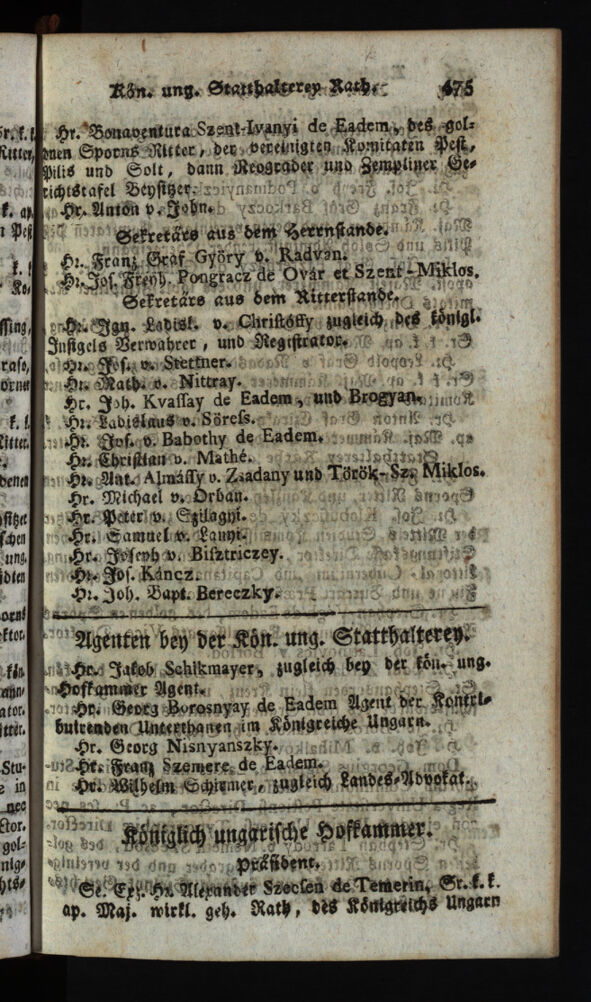 Kön. ung. Statthalterey Rath. 475
Hr. Bonaventura Szent-Ivanyi de Eadem, des gol-
dnen Sporns Ritter, der vereinigten Komitaten Pest,
Pilis und Solt, dann Neograder und Zempliner Ge-
richtstafel Beysitzer.
Hr. Anton v. John.
Sekretärs aus dem Herrnstande.
Hr. Franz Graf Győry v. Radvan.
Hr. Jos. Freyh. Pongracz de Ovár et Szent-Miklos.
Sekretärs aus dem Ritterstande.
Hr. Ign. Ladisl. v. Christóffy zugleich des königl.
Insigels Verwahrer, und Registrator.
Hr. Jos. v. Stettner.
Hr. Math. v. Nittray.
Hr. Joh. Kvassay de Eadem, und Brogyan.
Hr. Ladislaus v. Söress.
Hr. Jos. v. Babothy de Eadem.
Hr. Christian v. Mathé.
Hr. Ant. Almássy v. Zsadany und Török-Sz. Miklos.
Hr. Michael v. Orban.
Hr. Peter v. Szilagyi.
Hr. Samuel v. Lanyi.
Hr. Joseph v. Bisztriczey.
Hr. Jos. Káncz.
Hr. Joh. Bapt. Bereczky.
Agenten bey der Kön. ung. Statthalterey.
Hr. Jakob Schikmayer, zugleich bey der kön. ung.
Hofkammer Agent.
Hr. Georg Borosnyay de Eadem Agent der Kontri-
buirenden Unterthanen im Königreiche Ungarn.
Hr. Georg Nisnyanszky.
Hr. Franz Szemere de Eadem.
Hr. Wilhelm Schirmer, zugleich Landes-Advokat.
Königlich ungarische Hofkammer.
Präsident.
Se. Exz. Hr. Alexander Szecsen de Temerin, Sr. k. k.
ap. Maj. wirkl. geh. Rath, des Königreichs Ungarn